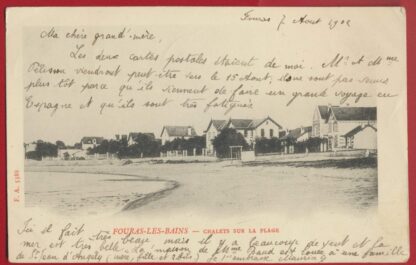 Fouras 7 Aout 1902
Ma chère grand'mère,
Les deux cartes postales étaient de moi. Mr et Mme
Pelisson viendront peut être vers le 15 Aout, ils ne sont pas venus
plus tôt parce qu'ils viennent de faire un grand voyage en
Espagne et qu'ils sont très fatigués
F. A. 5382
FOURAS-LES-BAINS — CHALETS SUR LA PLAGE
Ici il fait très beau mais il y a beaucoup de vent et la
mer est très belle. La maison de Mme est louée à une famille
de St Jean d'Angely (mère, fille et